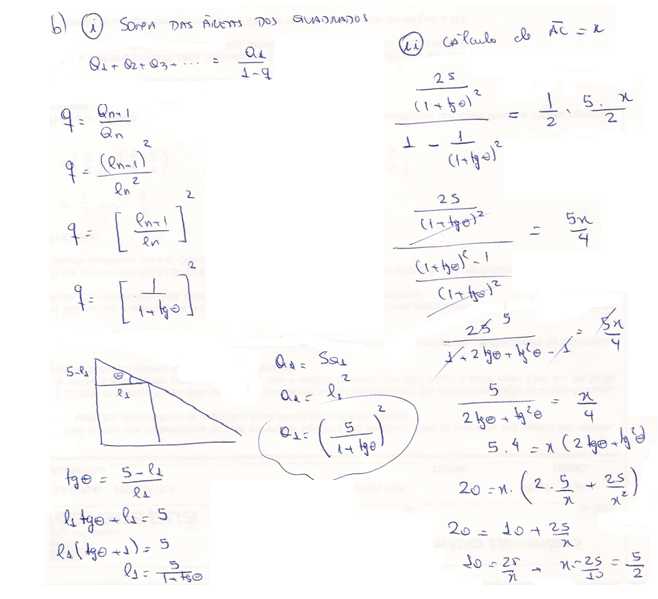 b) (i) SOMA DAS ÁREAS DOS QUADRADOS
a1 + a2 + a3 + ... = a1/(1-q)
q = an+1/an
q = (ln+1)²/ln²
q = [ln+1/ln]²
q = [1/(1+tgθ)]²
5-l1
θ
l1
tgθ = (5-l1)/l1
l1tgθ + l1 = 5
l1(tgθ+1) = 5
l1 = 5/(1+tgθ)
a1 = SQ1
a1 = l1²
a1 = (5/(1+tgθ))²
(ii) Cálculo de AC = x
(25/(1+tgθ)²)/(1 - 1/(1+tgθ)²) = 1/2 . 5.x/2
(25/(1+tgθ)²)/(((1+tgθ)²-1)/(1+tgθ)²) = 5x/4
25 5/(1+2tgθ+tg²θ-1) = 5x/4
5/(2tgθ+tg²θ) = x/4
5.4 = x(2tgθ+tg²θ)
20 = x.(2.5/x + 25/x²)
20 = 10 + 25/x
10 = 25/x → x = 25/10 = 5/2